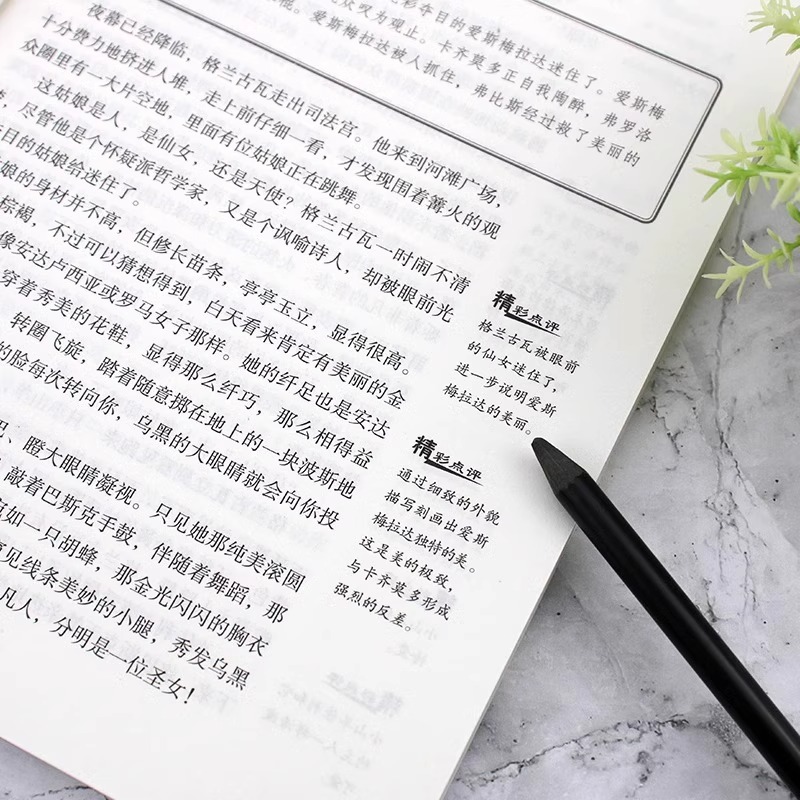 彩夺目的爱斯梅拉达迷住了。爱斯梅
众叹为观止。卡齐莫多正自我陶醉，弗罗洛
棍。爱斯梅拉达被人抓住，弗比斯经过救了美丽的
夜幕已经降临，格兰古瓦走出司法宫。他来到河滩广场，
十分费力地挤进人堆，走上前仔细一看，才发现围着篝火的观
众圈里有一大片空地，里面有位姑娘正在跳舞。
这姑娘是人，是仙女，还是天使？格兰古瓦一时闹不清
，尽管他是个怀疑派哲学家，又是个讽喻诗人，却被眼前光
目的姑娘给迷住了。
娘的身材并不高，但修长苗条，亭亭玉立，显得很高。
棕褐，不过可以猜想得到，白天看来肯定有美丽的金
像安达卢西亚或罗马女子那样。她的纤足也是安达
穿着秀美的花鞋，显得那么纤巧，那么相得益
转圈飞旋，踏着随意掷在地上的一块波斯地
的脸每次转向你，乌黑的大眼睛就会向你投
、瞪大眼睛凝视。只见她那纯美滚圆
敲着巴斯克手鼓，伴随着舞蹈，那
有如一只胡蜂，那金光闪闪的胸衣
见线条美妙的小腿，秀发乌黑
凡人，分明是一位圣女！
精彩点评
格兰古瓦被眼前
的仙女迷住了，
进一步说明爱斯
梅拉达的美丽。
精彩点评
通过细致的外貌
描写刻画出爱斯
梅拉达独特的美。
这是美的极致，
与卡齐莫多形成
强烈的反差。